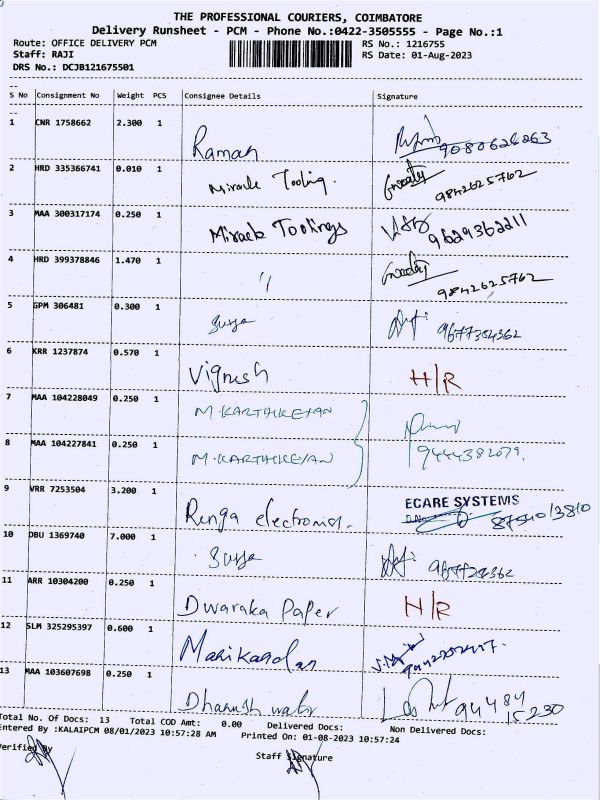 THE PROFESSIONAL COURIERS, COIMBATORE
Delivery Runsheet - PCM - Phone No.:0422-3505555 - Page No.:1
Route: OFFICE DELIVERY PCM RS No.: 1216755
Staff: RAJI RS Date: 01-Aug-2023
DRS No.: DCJB121675501
S No Consignment No Weight PCS Consignee Details Signature
1 CNR 1758662 2.300 1 Raman 9080626263
2 HRD 335366741 0.010 1 Miracle Tooling. 9842625762
3 MAA 300317174 0.250 1 Miracle Toolings 9629362211
4 HRD 399378846 1.470 1 〃 9842625762
5 GPM 306481 0.300 1 Surya
6 KRR 1237874 0.570 1 Vignesh H/R
7 MAA 104228049 0.250 1 M.KARTHIKEYAN
8 MAA 104227841 0.250 1 M.KARTHIKEYAN 9444382079.
9 VRR 7253504 3.200 1 Renga electronics. ECARE SYSTEMS
10 DBU 1369740 7.000 1 Surya
11 ARR 10304200 0.250 1 Dwaraka Paper H/R
12 SLM 325295397 0.600 1 Manikandan
13 MAA 103607698 0.250 1 Dhanush 94484 15230
Total No. Of Docs: 13 Total COD Amt: 0.00 Delivered Docs: Non Delivered Docs:
Entered By :KALAIPCM 08/01/2023 10:57:28 AM Printed On: 01-08-2023 10:57:24
Verified By Staff Signature